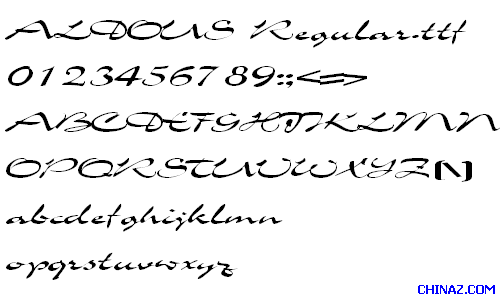 ALDOUS Regular.ttf
0123456789:;<=>
ABCDEFGHIJKLMN
OPQRSTUVWXYZ[\]
abcdefghijklmn
opqrstuvwxyz
CHINAZ.COM